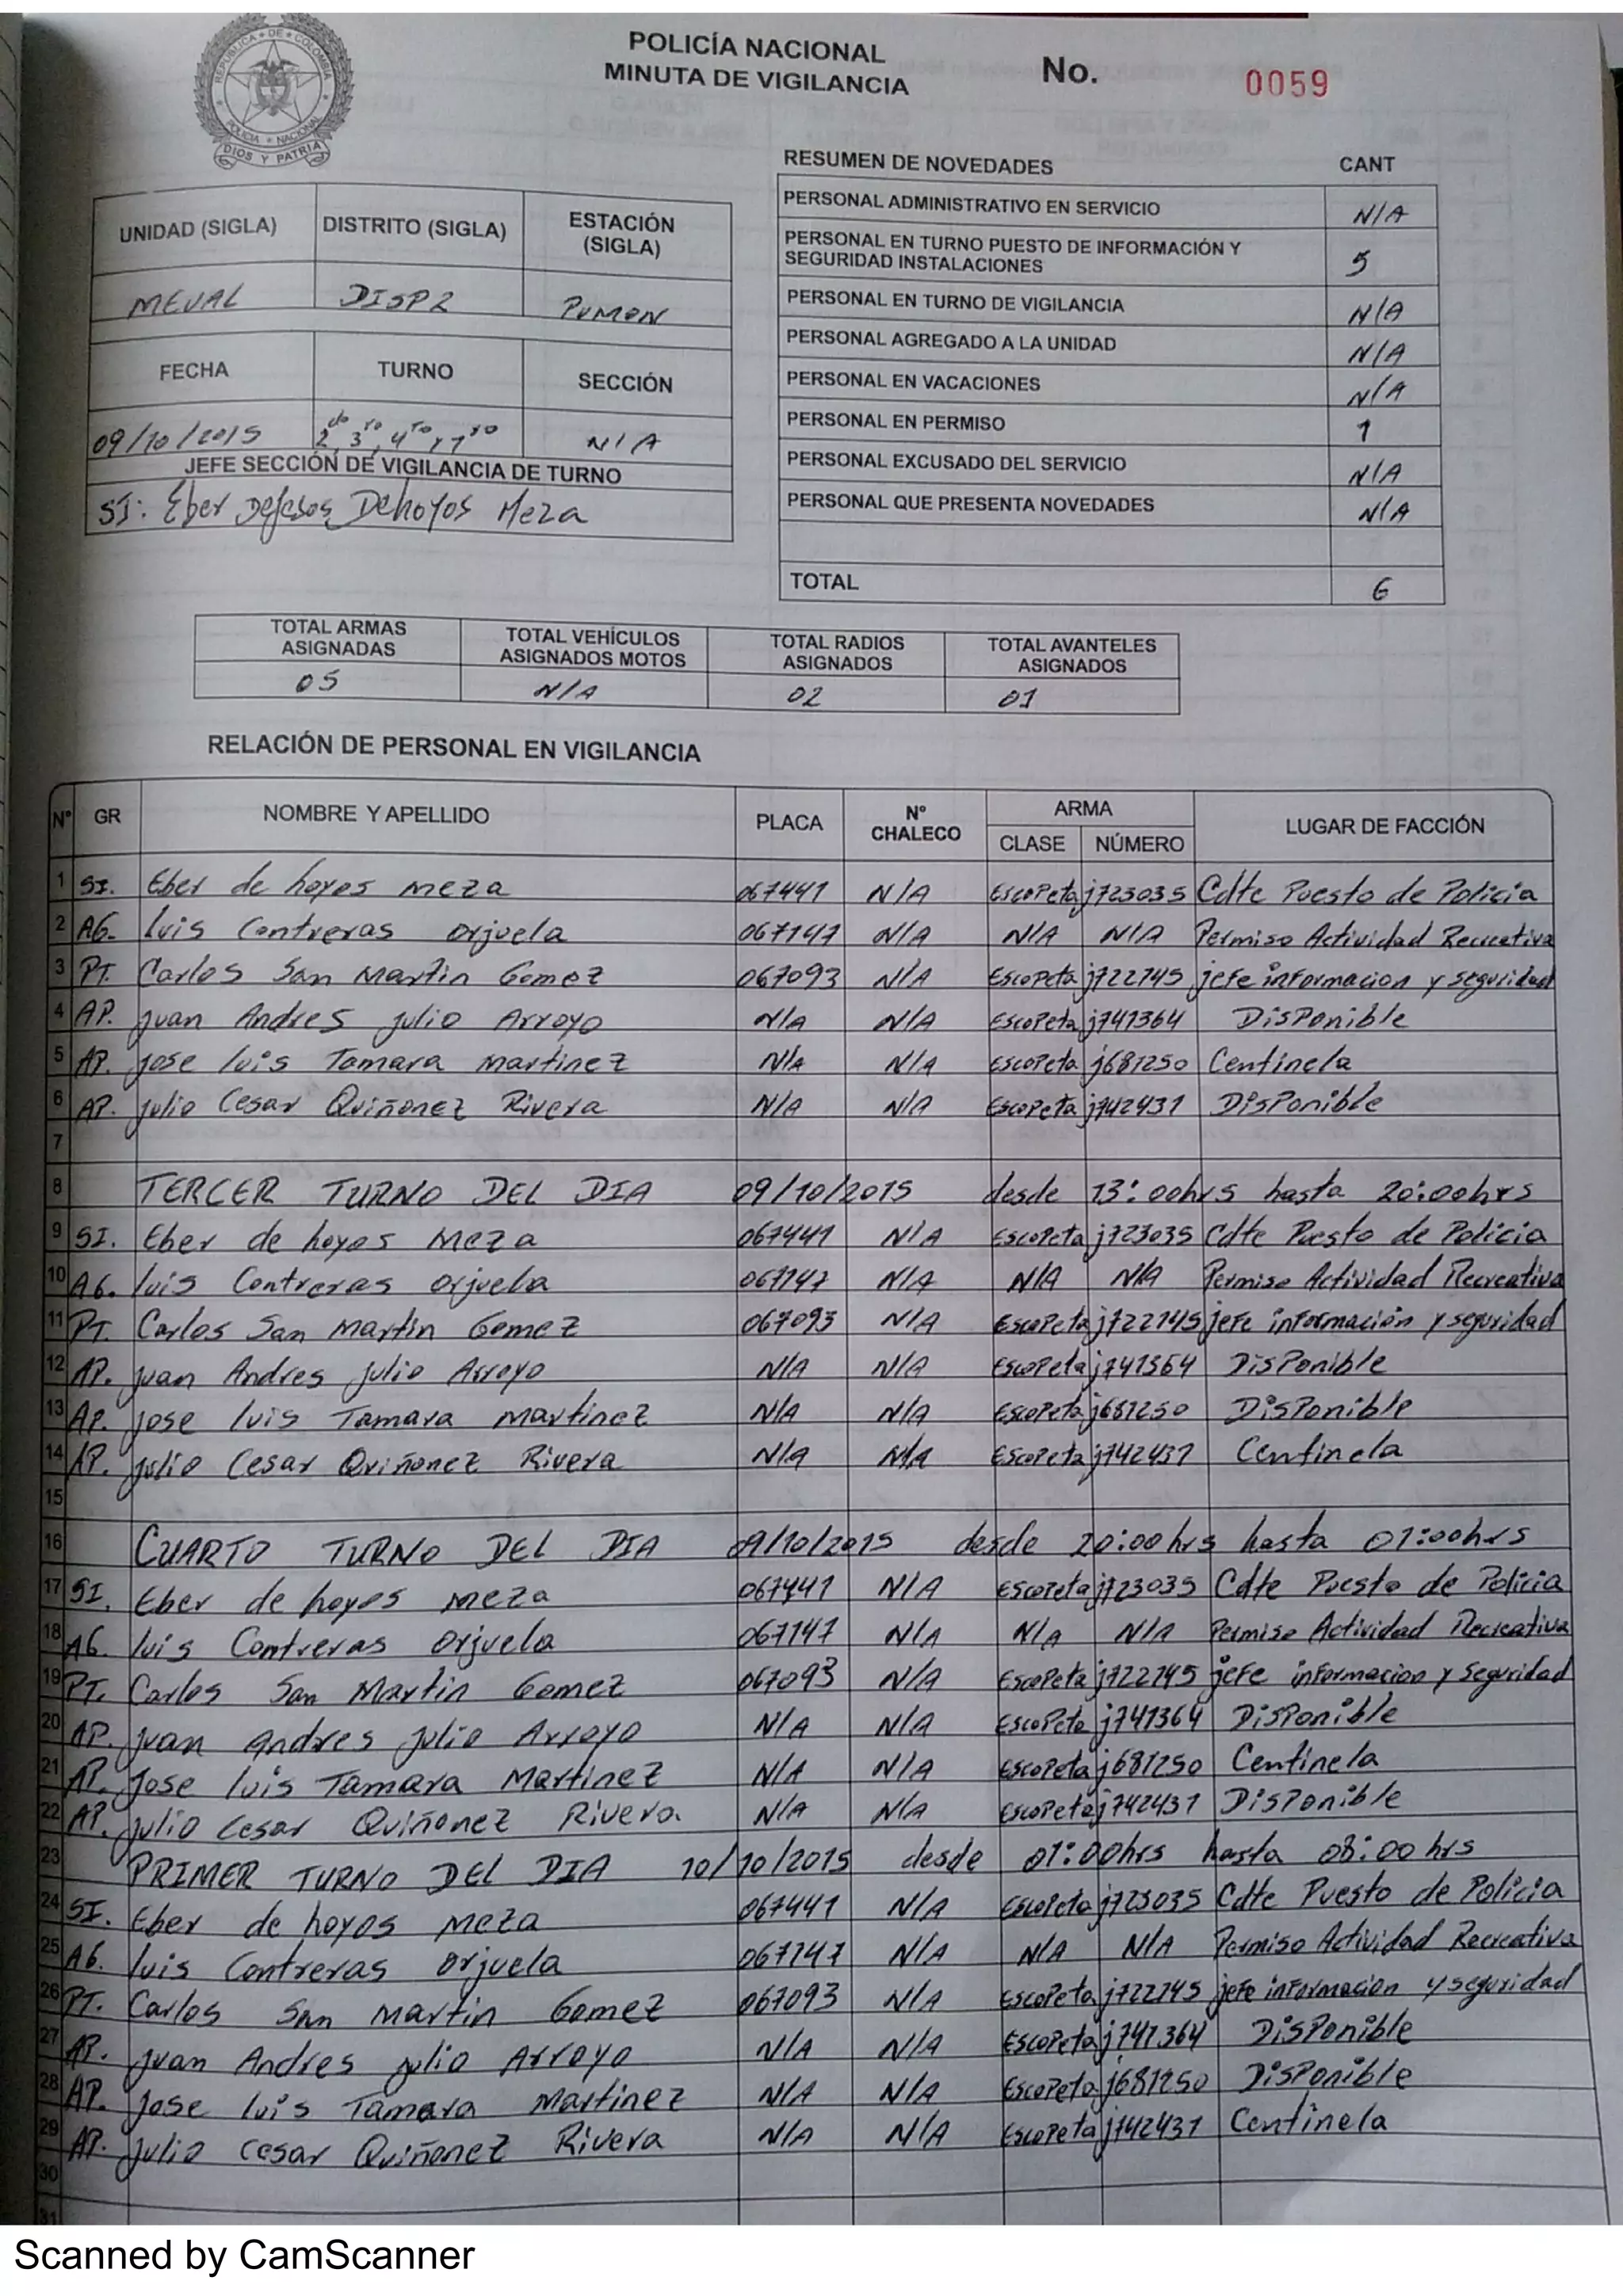 REPUBLICA DE COLOMBIA
POLICIA NACIONAL
DIOS Y PATRIA
POLICÍA NACIONAL
MINUTA DE VIGILANCIA
No. 0059
UNIDAD (SIGLA) DISTRITO (SIGLA) ESTACIÓN (SIGLA)
MEVAL DISP2 PUMON
FECHA TURNO SECCIÓN
09/10/2015 2do, 3ro, 4to y 1ro N/A
JEFE SECCIÓN DE VIGILANCIA DE TURNO
SI: Eber Dejesos Dehoyos Meza
RESUMEN DE NOVEDADES CANT
PERSONAL ADMINISTRATIVO EN SERVICIO N/A
PERSONAL EN TURNO PUESTO DE INFORMACIÓN Y
SEGURIDAD INSTALACIONES 5
PERSONAL EN TURNO DE VIGILANCIA N/A
PERSONAL AGREGADO A LA UNIDAD N/A
PERSONAL EN VACACIONES N/A
PERSONAL EN PERMISO 1
PERSONAL EXCUSADO DEL SERVICIO N/A
PERSONAL QUE PRESENTA NOVEDADES N/A
TOTAL 6
TOTAL ARMAS ASIGNADAS TOTAL VEHÍCULOS ASIGNADOS MOTOS TOTAL RADIOS ASIGNADOS TOTAL AVANTELES ASIGNADOS
05 N/A 02 01
RELACIÓN DE PERSONAL EN VIGILANCIA
N° GR NOMBRE Y APELLIDO PLACA N° CHALECO ARMA CLASE NÚMERO LUGAR DE FACCIÓN
1 SI. Eber de hoyos meza 067441 N/A Escopeta j723035 Cdte Puesto de Policia
2 AG. luis Contreras orjuela 067147 N/A N/A N/A Permiso Actividad Recreativa
3 PT. Carlos San Martin Gomez 067093 N/A Escopeta j722745 jefe informacion y seguridad
4 AP. juan Andres julio Arroyo N/A N/A Escopeta j741364 Disponible
5 AP. jose luis Tamara martinez N/A N/A Escopeta j681250 Centinela
6 AP. julio Cesar Quiñonez Rivera N/A N/A Escopeta j742431 Disponible
7
8 TERCER TURNO DEL DIA 09/10/2015 desde 13:00hrs hasta 20:00hrs
9 SI. Eber de hoyos meza 067441 N/A Escopeta j723035 Cdte Puesto de Policia
10 AG. luis Contreras orjuela 067147 N/A N/A N/A Permiso Actividad Recreativa
11 PT. Carlos San martin Gomez 067093 N/A Escopeta j722745 jefe información y seguridad
12 AP. juan Andres julio Arroyo N/A N/A Escopeta j741364 Disponible
13 AP. jose luis Tamara martinez N/A N/A Escopeta j681250 Disponible
14 AP. julio Cesar Quiñonez Rivera N/A N/A Escopeta j742431 Centinela
15
16 CUARTO TURNO DEL DIA 09/10/2015 desde 20:00hrs hasta 01:00hrs
17 SI. Eber de hoyos meza 067441 N/A Escopeta j723035 Cdte Puesto de Policia
18 AG. luis Contreras orjuela 067147 N/A N/A N/A Permiso Actividad Recreativa
19 PT. Carlos San Martin Gomez 067093 N/A Escopeta j722745 jefe informacion y Seguridad
20 AP. juan andres julio Arroyo N/A N/A Escopeta j741364 Disponible
21 AP. Jose luis Tamara Martinez N/A N/A Escopeta j681250 Centinela
22 AP. julio cesar Quiñonez Rivera N/A N/A Escopeta j742431 Disponible
23 PRIMER TURNO DEL DIA 10/10/2015 desde 01:00hrs hasta 08:00 hrs
24 SI. Eber de hoyos meza 067441 N/A Escopeta j723035 Cdte Puesto de Policia
25 AG. luis Contreras orjuela 067147 N/A N/A N/A Permiso Actividad Recreativa
26 PT. Carlos San martin Gomez 067093 N/A Escopeta j722745 jefe informacion y seguridad
27 AP. juan Andres julio Arroyo N/A N/A Escopeta j741364 Disponible
28 AP. Jose luis Tamara Martinez N/A N/A Escopeta j681250 Disponible
29 AP. julio cesar Quiñonez Rivera N/A N/A Escopeta j742431 Centinela
30
31
Scanned by CamScanner